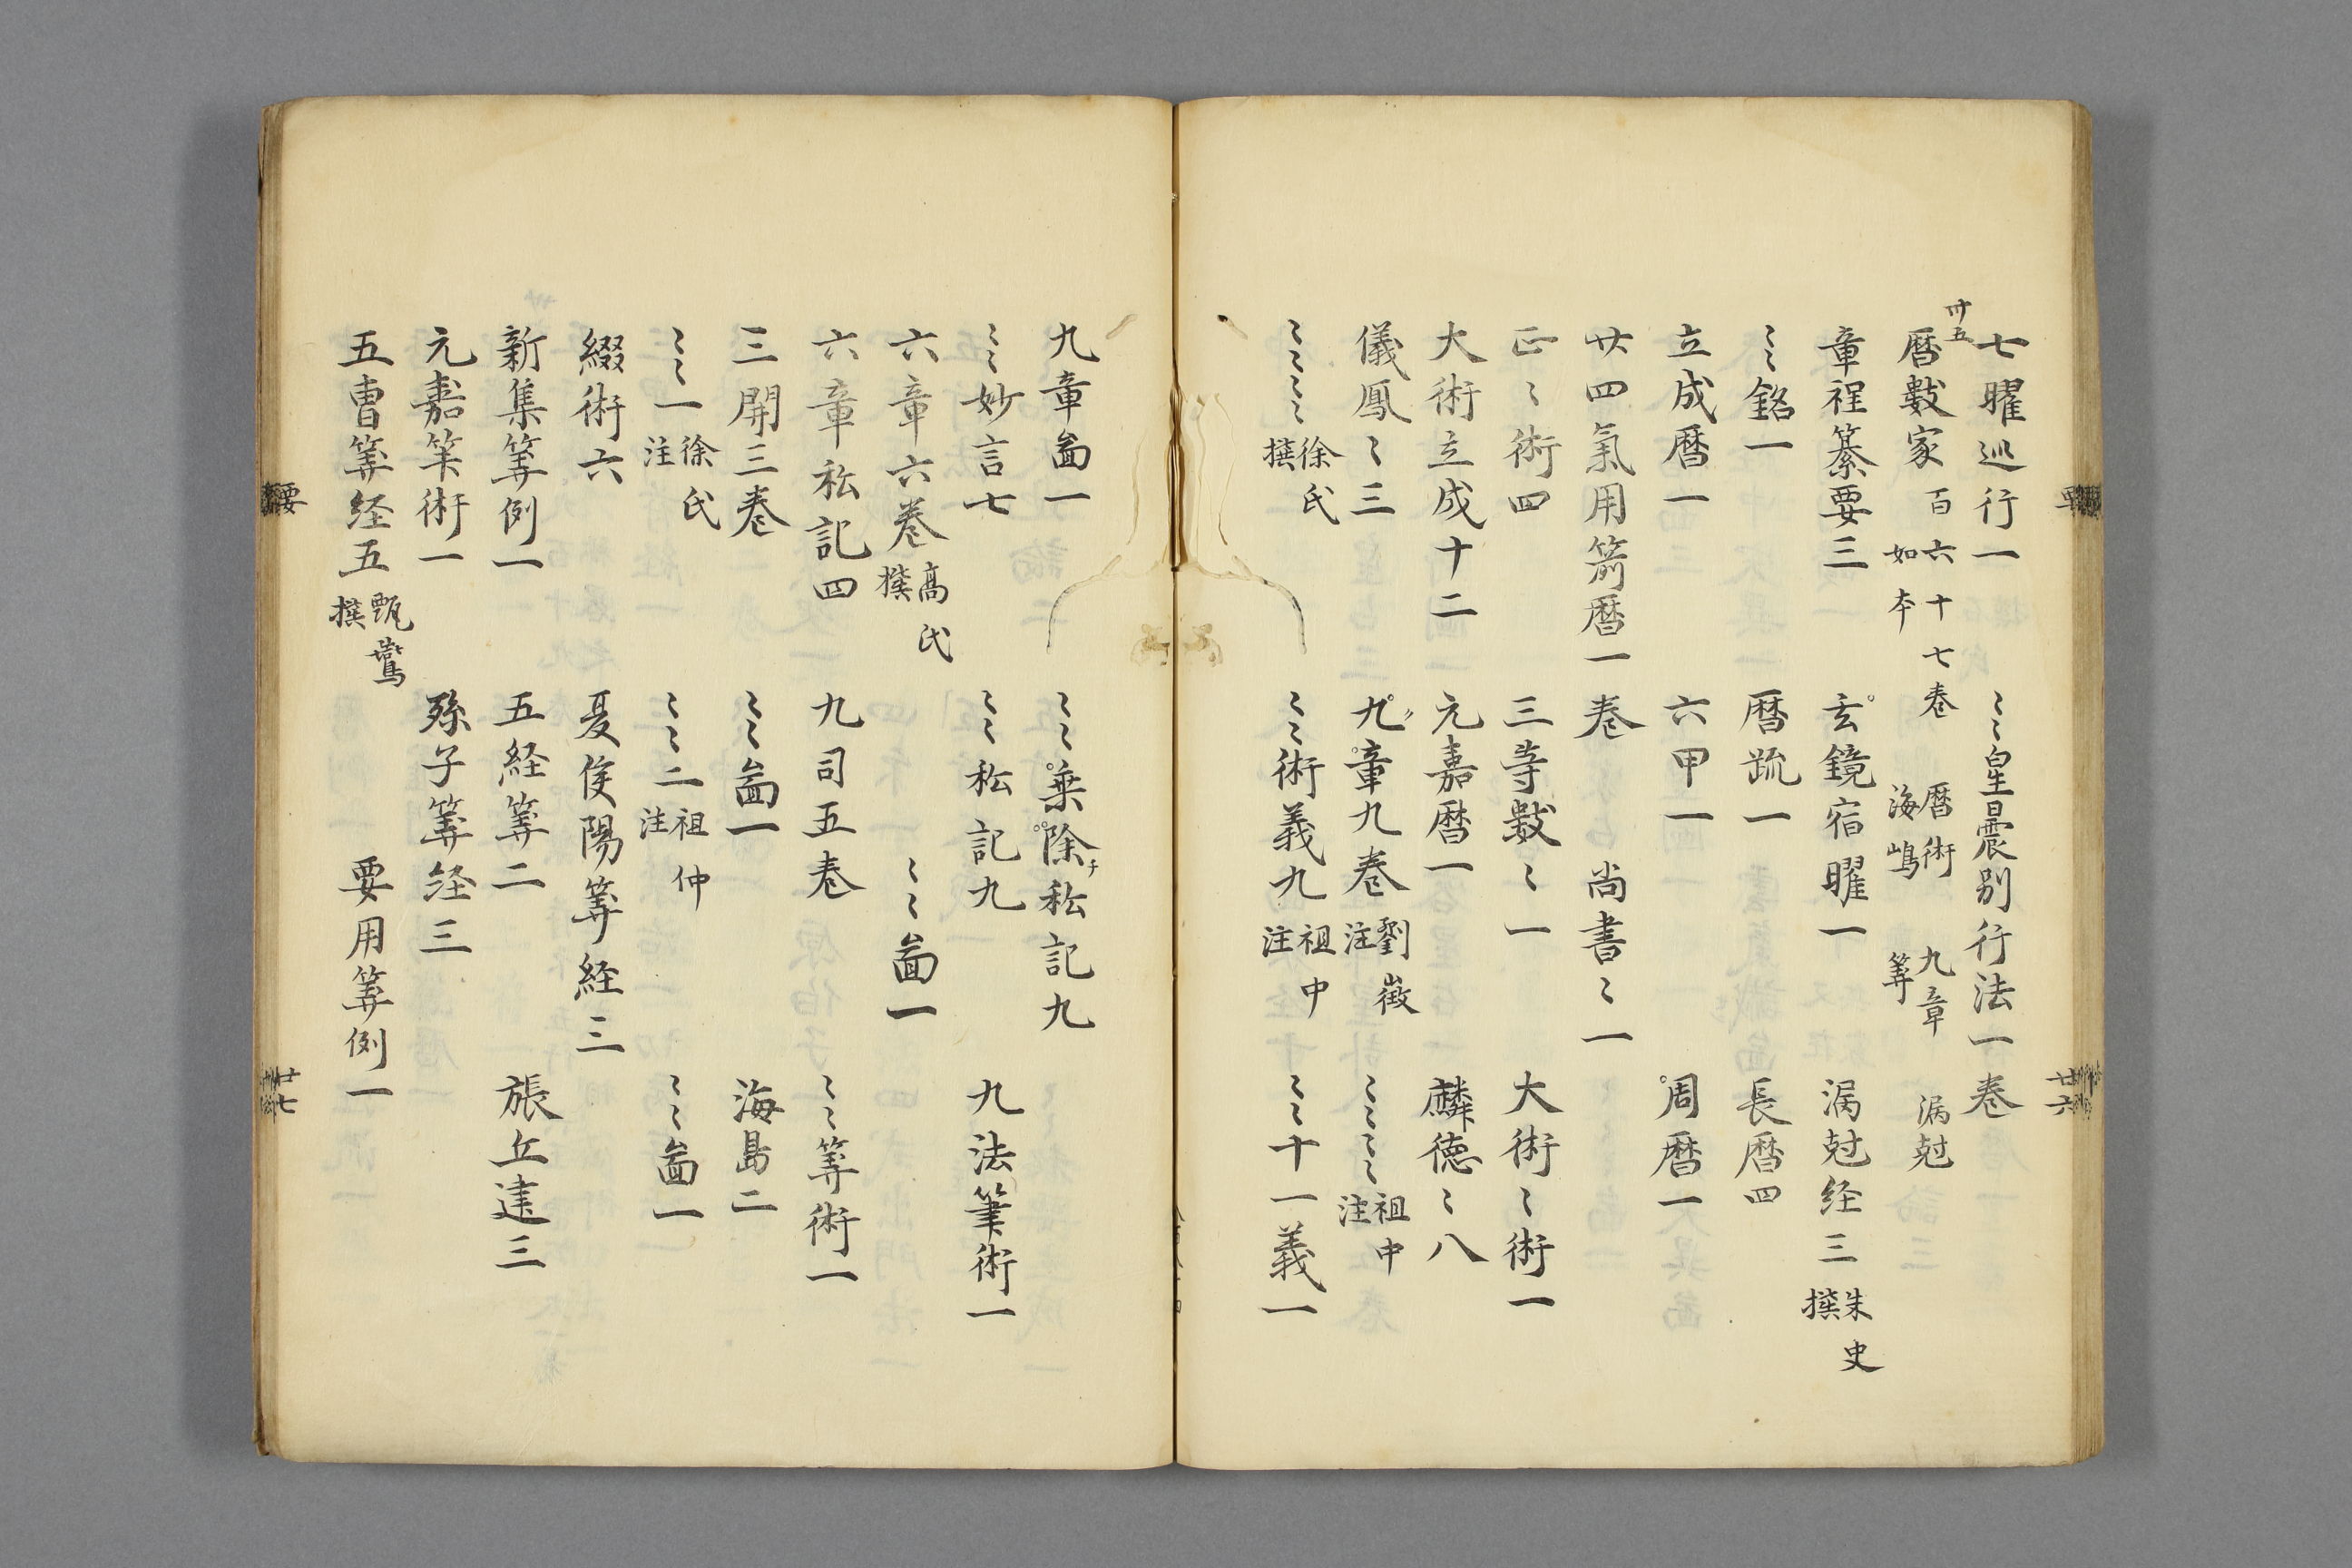 七曜巡行一　〻〻星晨別行法一卷
卅五
暦數家　百六十七卷　如本　暦術　海嶋　九章　筭　漏尅
章程纂要三　玄鏡宿曜一　漏尅経三　朱史撰
〻〻銘一　暦䟽一　長暦四
立成暦一　六甲一　周暦一
廿四氣用箭暦一卷　尚書〻一
正〻術四　三等數〻一　大術〻術一
大術立成十二　元嘉暦一　麟徳〻八
儀鳳〻三　九章九卷　劉徽注　〻〻〻〻　祖中注
〻〻〻〻　徐氏撰　〻〻術義九　祖中注　〻〻十一義一
廿六
九章啚一　〻〻乗除私記九
〻〻妙言七　〻〻私記九　九法筆術一
六章六卷　髙氏撰　〻〻啚一
六章私記四　九司五卷　〻〻筭術一
三開三卷　〻〻啚一　海島二
〻〻一　徐氏注　〻〻二　祖仲注　〻〻啚一
綴術六　夏侯陽筭経三
新集筭例一　五経筭二　張丘建三
元嘉筭術一　孫子筭経三
五曹筭経五　甄鸞撰　要用筭例一
要
廿七